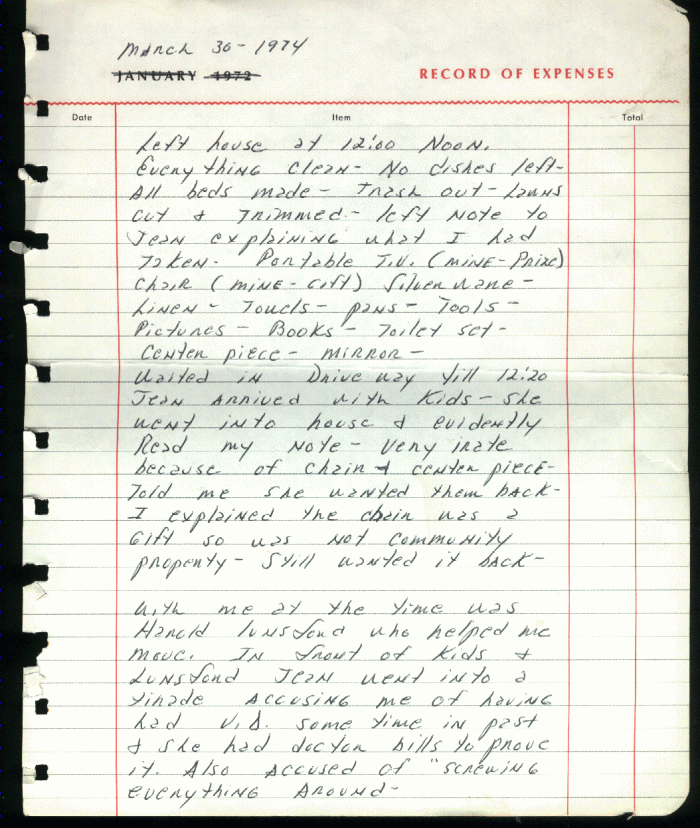 MARCH 30-1974
JANUARY 1972
RECORD OF EXPENSES
Date Item Total
Left house at 12:00 Noon.
Everything clean - No dishes left -
All beds made - Trash out - Lawns
cut & Trimmed - left Note to
Jean explaining what I had
Taken - Portable T.V. (MINE - Prize)
Chair (MINE - Gift) Silverware -
Linen - Towels - pans - Tools -
Pictures - Books - Toilet set -
Center piece - MIRROR -
Waited in Driveway till 12:20
Jean ARRIVED with Kids - She
went into house & evidently
Read my Note - Very irate
because of chair & center piece -
Told me she wanted them back -
I explained the chair was a
Gift so was Not Community
property - Still wanted it back -
With me at the time was
Harold Lunsford who helped me
move. In front of Kids &
Lunsford Jean went into a
tirade Accusing me of having
had V.D. some time in past
& she had doctor bills to prove
it. Also Accused of "screwing
everything Around -